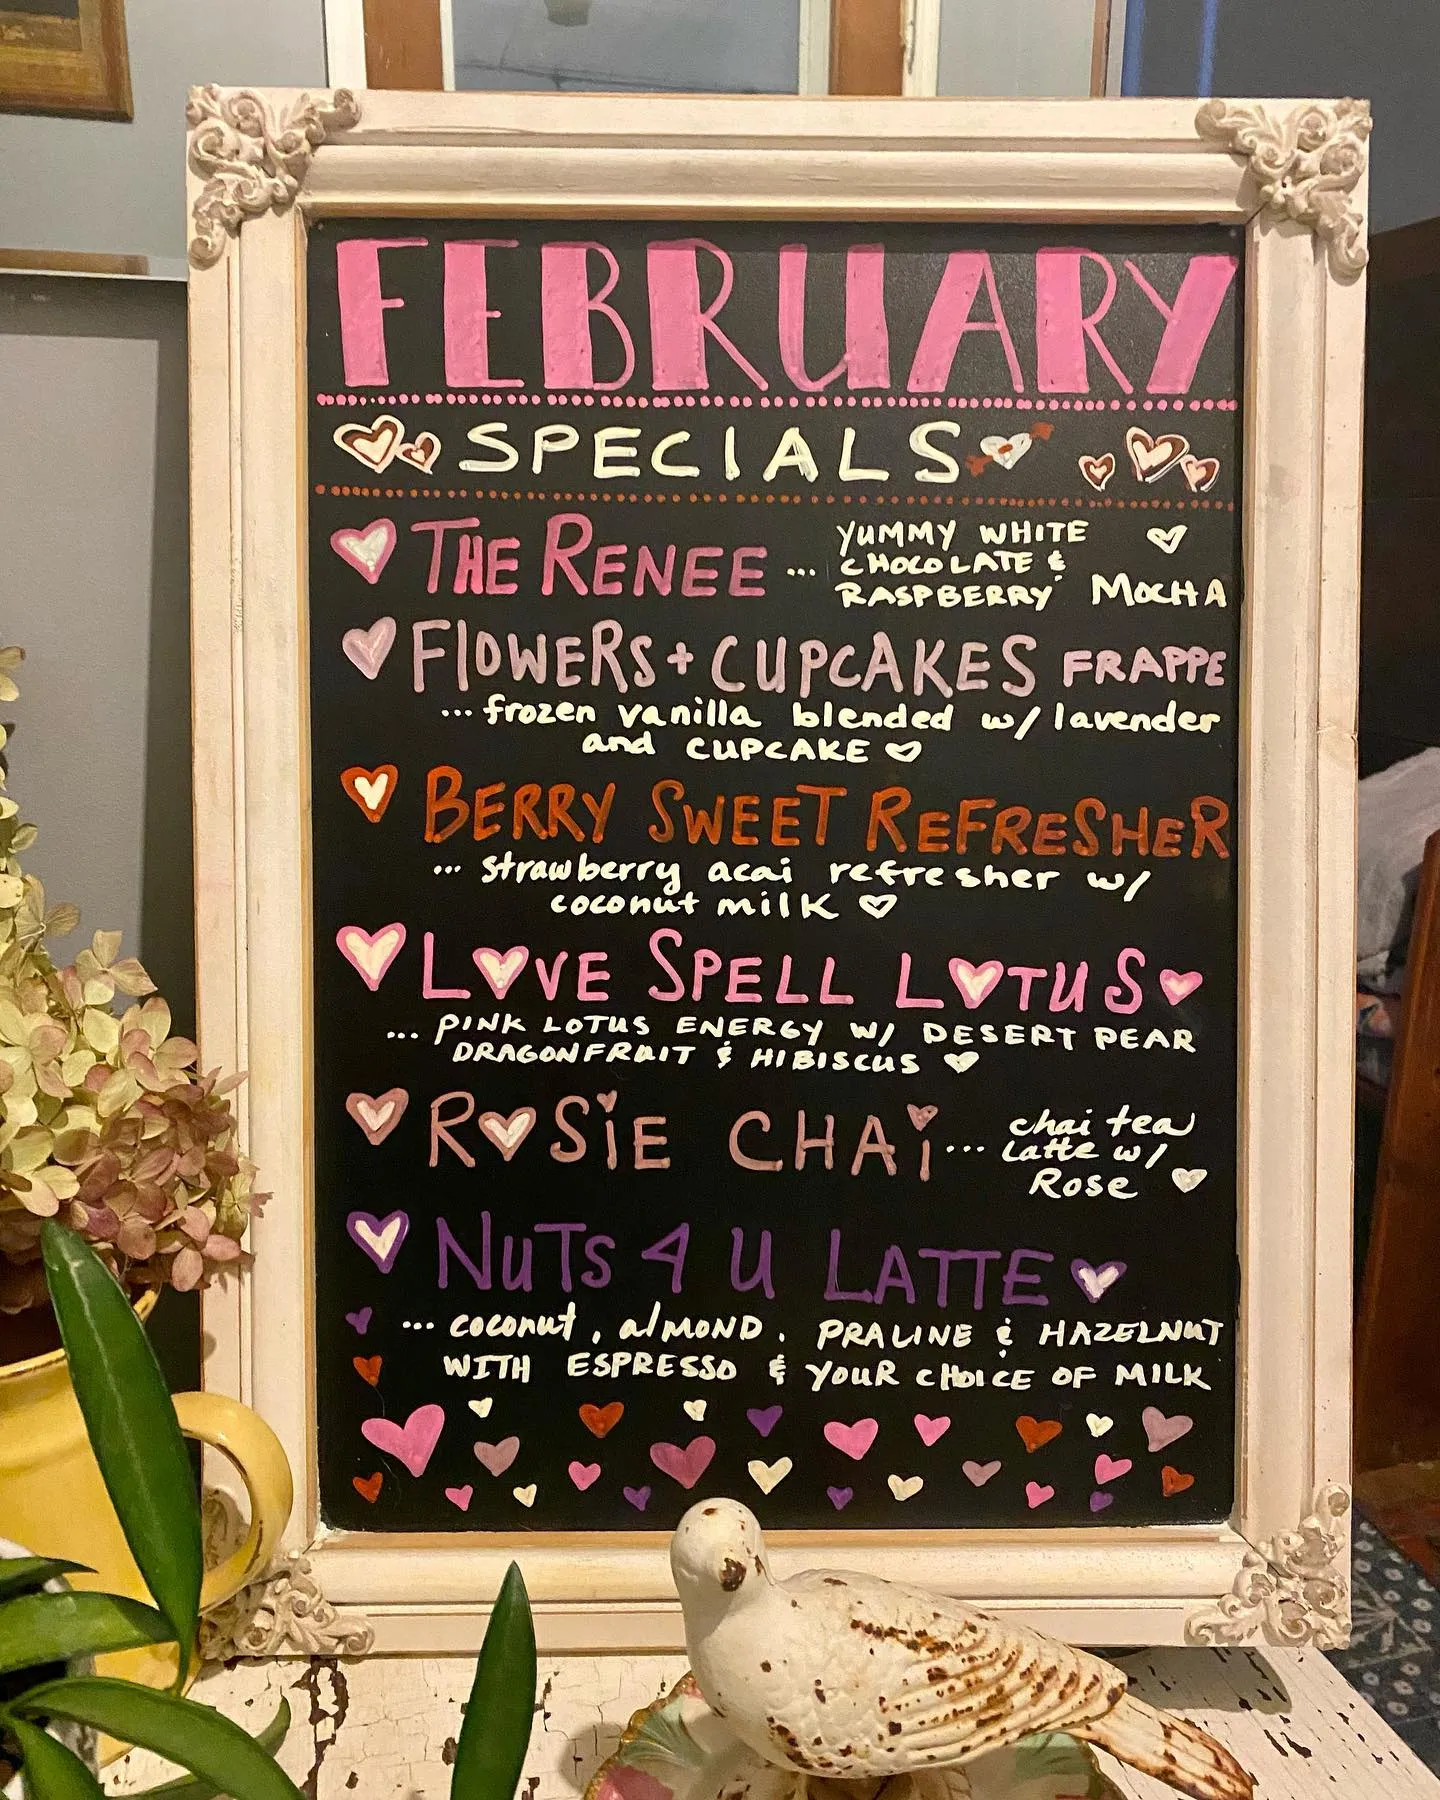 FEBRUARY
SPECIALS
THE RENEE ... YUMMY WHITE
CHOCOLATE &
RASPBERRY MOCHA
FlOWERS + CUPCAKES FRAPPE
... frozen vanilla blended w/ lavender
and CUPCAKE
BERRY SWEET REFRESHER
... strawberry acai refresher w/
coconut milk
LOVE SPELL LOTUS
... PINK LOTUS ENERGY W/ DESERT PEAR
DRAGONFRUIT & HIBISCUS
ROSiE CHAi ... chai tea
Latte w/
Rose
NuTs 4 U LATTE
... coconut, alMOND, PRALINE & HAZELNUT
WITH ESPRESSO & YOUR CHOICE OF MILK